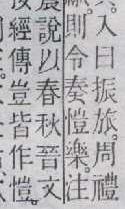 入曰振旅。周禮
則令奏愷樂。注
農說以春秋晉文
按經傳豈皆作愷。